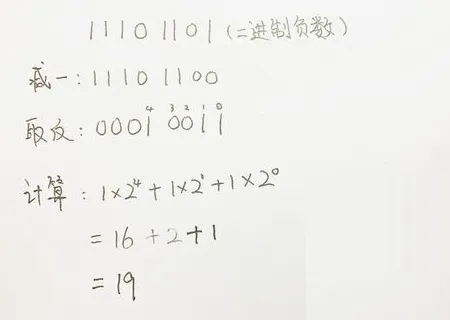 1110 1101 (二进制负数)
减一: 1110 1100
4 3 2 1 0
取反: 0001 0011
计算: 1×2⁴+1×2¹+1×2⁰
= 16 + 2 + 1
= 19